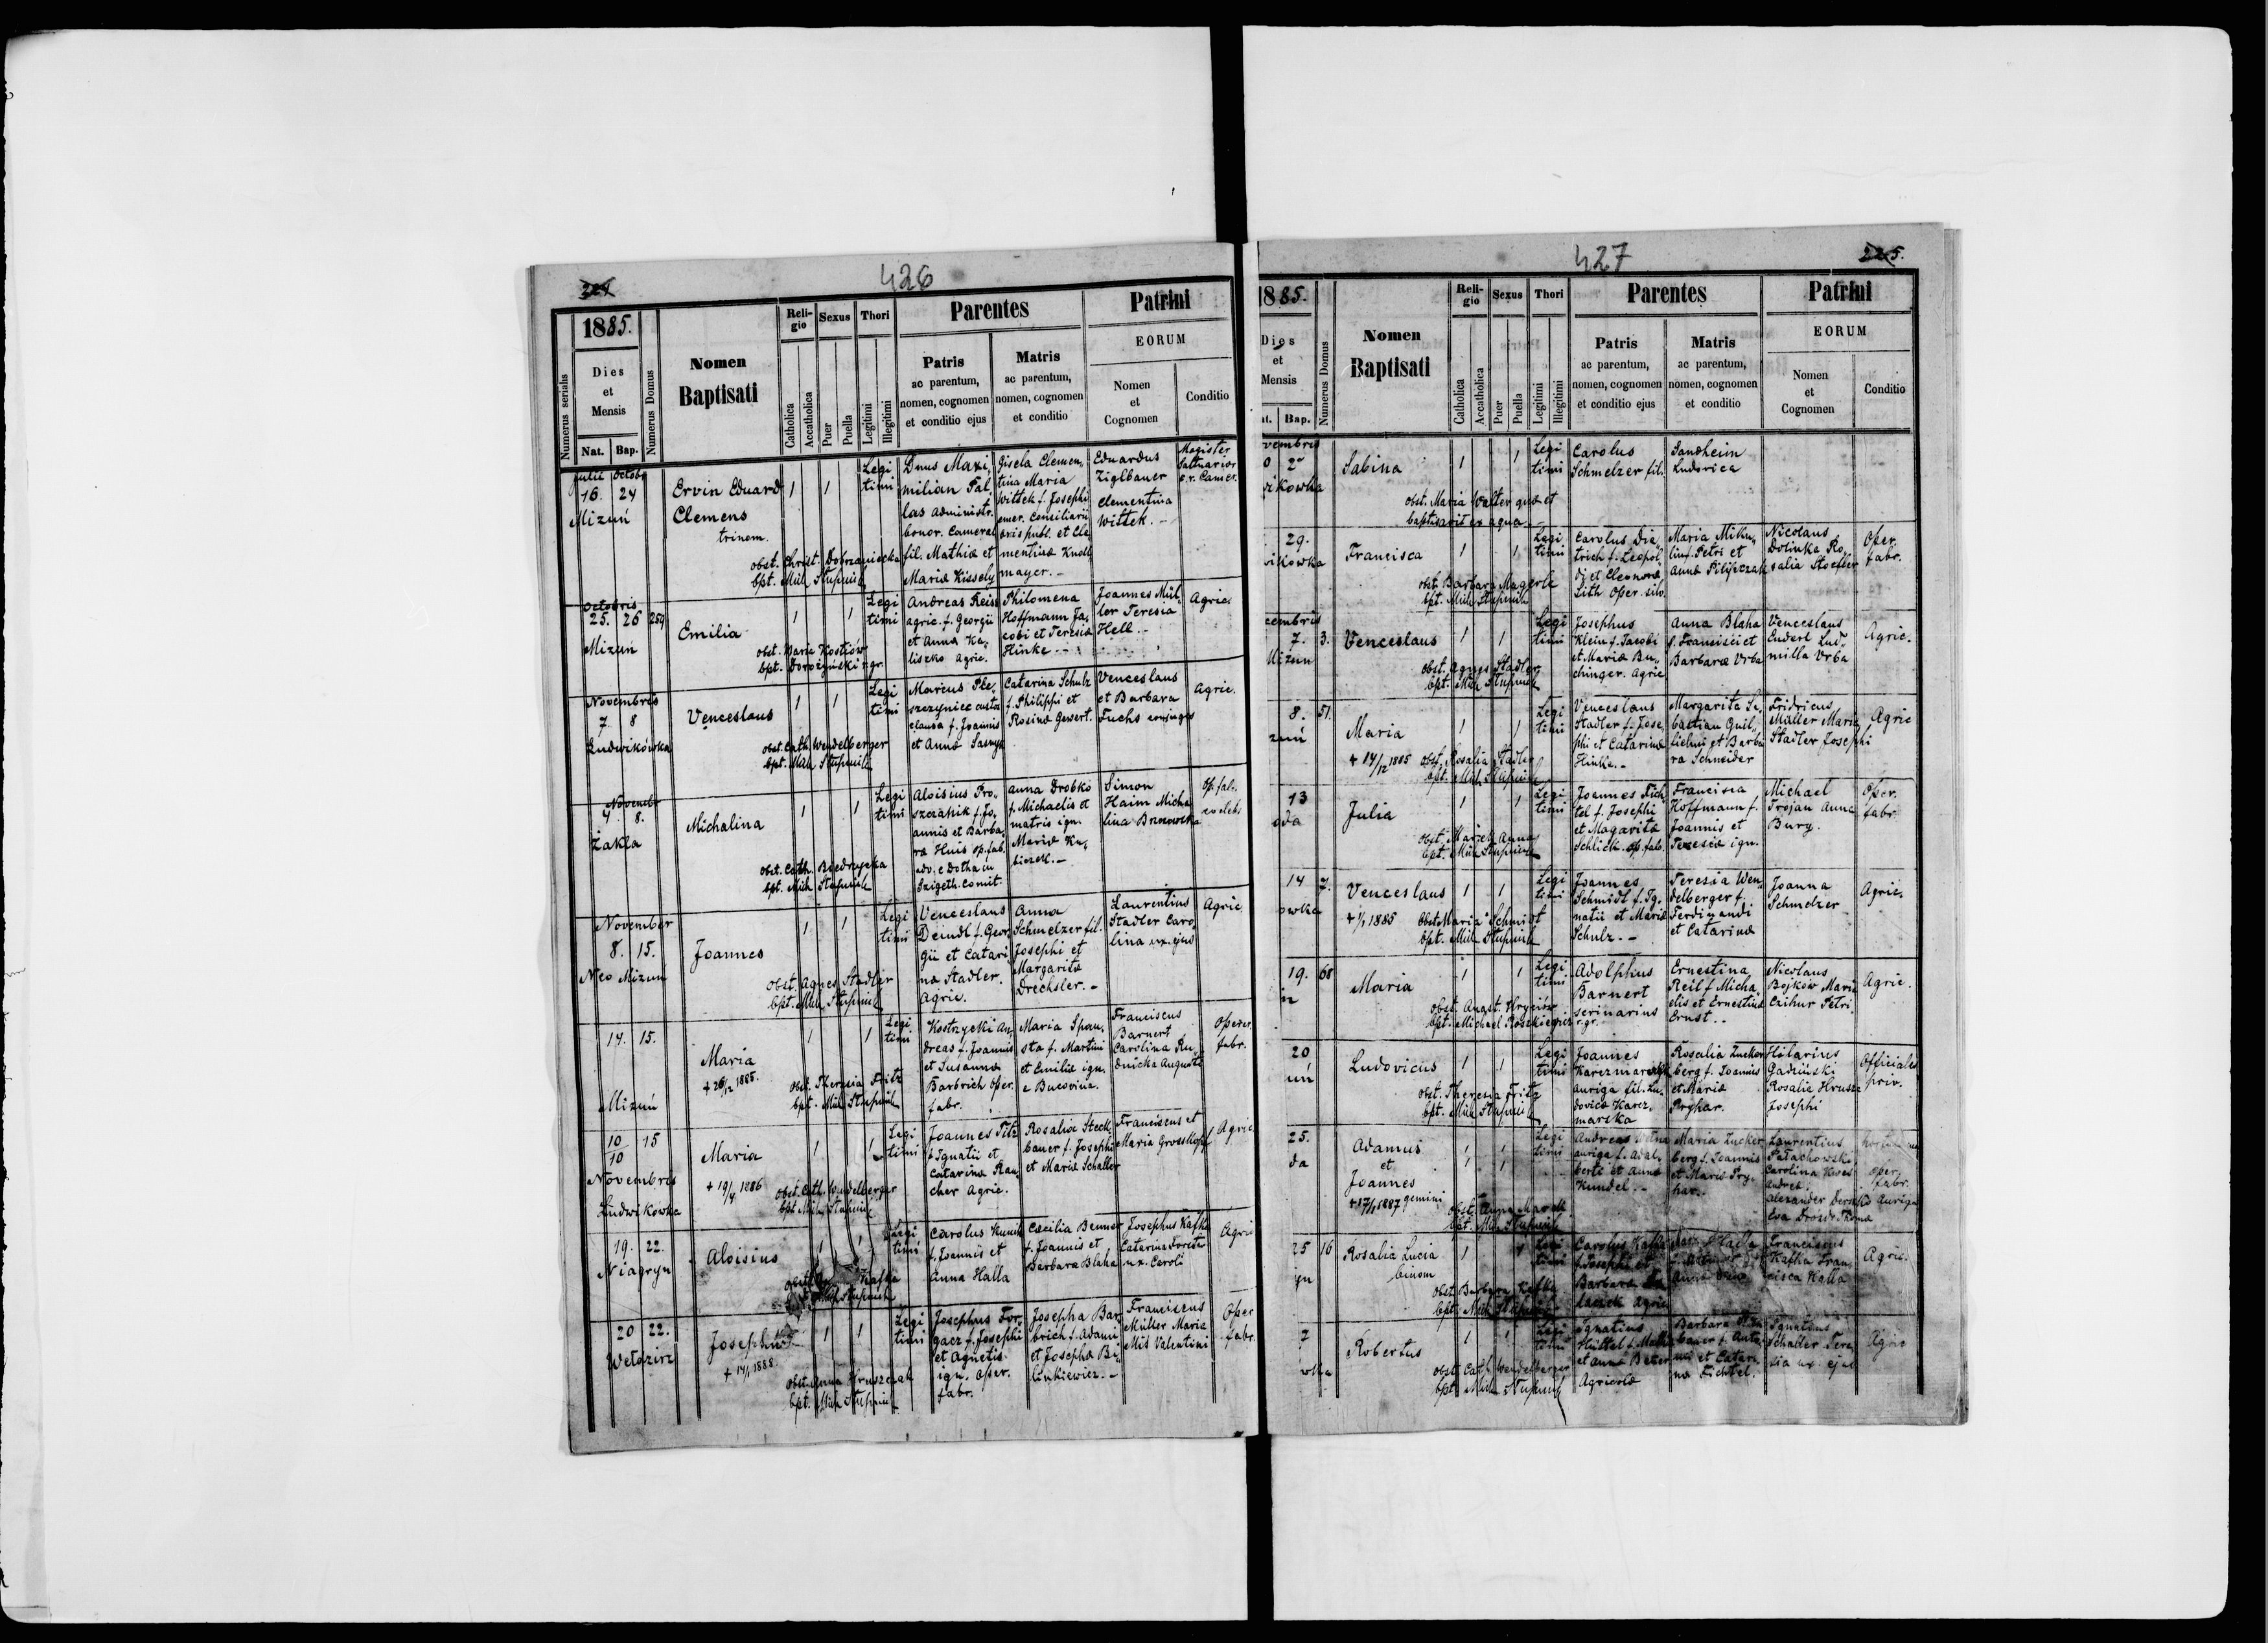 426
1885.
Numerus serialis
Dies
et
Mensis
Nat. Bap.
Numerus Domus
Nomen
Baptisati
Religio
Catholica
Accatholica
Sexus
Puer
Puella
Thori
Legitimi
Illegitimi
Parentes
Patris
ac parentum,
nomen, cognomen
et conditio ejus
Matris
ac parentum,
nomen, cognomen
et conditio
Patrini
EORUM
Nomen
et
Cognomen
Conditio
Julii Octobr
16. 24
Mizuń
Ervin Eduard
Clemens
trinom.
obst. Christ. Dobrzaniecka
bpt. Mich Stupnick
1 1
Legi
timi
Dnus Maxi,
milian Pal,
las administr.
bonor. Cameral
fil. Mathiæ et
Mariæ Kissely
Gisela Clemen,
tina Maria
Wittek f. Josephi
emer. Consiliarii
et Cle
mentinæ Knoll
mayer. -
Eduardus
Ziglbauer
Clementina
Wittek. -
Magister
Saltuarior
c.r. Camer.
Octobris
25. 26 259
Mizuń
Emilia
obst. Maria Kostiów
bpt. Dorożyński r.gr.
1 1
Legi
timi
Andreas Reiss
agric. f. Georgii
et Anna Ka,
liszko agric.
Philomena
Hoffmann Ja,
cobi et Teresiæ
Hinke. -
Joannes Mül,
ler Teresia
Hell. -
Agric.
Novembris
7 8
Ludwikówka
Venceslaus
obst. Cath. Wendelberger
bpt. Mich Stupnick
1 1
Legi
timi
Marcus Ple,
szczyniec custos
f. Joannis
et Annæ
Catarina Schulz
f. Philippi et
Rosinæ Gewert.
Venceslaus
et Barbara
Fuchs conjuges
Agric.
Novembr
4. 8.
Żakla
Michalina
obst. Cath. Biedrzycka
bpt. Mich Stupnick
1 1
Legi
timi
Aloisius Pro,
szczanik f. Jo,
annis et Barba,
ræ Huis op. fab.
adv. e Dotha in
Szigeth. Comit.
Anna Drobko
f. Michaelis et
matris ign.
Mariæ
Simon
Haim Micha
lina
Op. fab.
November
8. 15.
Neo Mizun
Joannes
obst. Agnes Stadler
bpt. Mich. Stupnick
1 1
Legi
timi
Venceslaus
Deindl f. Geor
gii et Catari
næ Stadler.
Agric.
Anna
Schmelzer fil.
Josephi et
Margaritæ
Drechsler. -
Laurentius
Stadler Caro
lina ux. ejus
Agric
14. 15.
Mizuń
Maria
+ 26/12 1885.
obst. Theresia Fritz
bpt. Mich Stupnick
1 1
Legi
timi
Kostrzycki An,
dreas f. Joannis
et Susannæ
Barbrich oper.
fabr.
Maria Span,
sta f. Martini
et Emiliæ ign.
e Bucovina.
Franciscus
Barnert
Carolina Ru,
dnicka Augusti
Operar.
fabr.
10 15
10
Novembris
Ludwikówka
Maria
+ 19/4 1886
obst. Cath. Wendelberger
bpt Mich Stupnick
1 1
Legi
timi
Joannes Titz
f. Ignatii et
Catarinæ Rau,
cher Agric.
Rosalia Steck,
bauer f. Josephi
et Mariæ Schaller
Franciscus et
Maria Grosskopf
Agric
19. 22.
Niagryn
Aloisius
Kafka
Stupnick
1 1
Legi
timi
Carolus Kunik
f. Joannis et
Anna Halla
Cæcilia Benner
f. Joannis et
Barbara Blaha
Josephus Kafka
Catarina
ux. Caroli
Agric
20 22.
Wełdzirz
Josephus
+ 14/1 1888.
obst. Anna Hruszczak
bpt. Mich Stupnick
1 1
Legi
timi
Josephus For,
gacz f. Josephi
et Agnetis
ign. oper.
fabr.
Josepha Bar
brich f. Adami
et Josephæ Bi,
linkiewicz. -
Franciscus
Müller Maria
Mis Valentini
Oper
fabr.
427
225.
1885.
Dies
et
Mensis
at. Bap.
Numerus Domus
Nomen
Baptisati
Religio
Catholica
Accatholica
Sexus
Puer
Puella
Thori
Legitimi
Illegitimi
Parentes
Patris
ac parentum,
nomen, cognomen
et conditio ejus
Matris
ac parentum,
nomen, cognomen
et conditio
Patrini
EORUM
Nomen
et
Cognomen
Conditio
vembris
0 2
ikowka
Sabina
obst. Maria Walter quæ et
baptisavit ex aqua -
1 1
Legi
timi
Carolus
Schmelzer fil.
Sandheim
Ludovica
29.
ikowka
Francisca
obst. Barbara Magerle
bpt. Mich Stupnick
1 1
Legi
timi
Carolus Die,
trich f. Leopol,
di et Eleonoræ
Lith oper. silv.
Maria Miku,
lin f. Petri et
Annæ Pilipczak
Nicolaus
Dolinka Ro,
salia Stoeller
Oper.
fabr.
cembris
7. 3.
Mizun
Venceslaus
obst. Agnes Stadler
bpt. Mich Stupnick
1 1
Legi
timi
Josephus
Klein f. Jacobi
et Mariæ Bu,
chinger. Agric
Anna Blaha
f. Francisci et
Barbaræ Vrba
Venceslaus
Enderl Lud,
milla Vrba
Agric.
8. 51.
zuń
Maria
+ 14/12 1885
obst. Rosalia Stadler
bpt. Mich. Stupnick
1 1
Legi
timi
Venceslaus
Stadler f. Jose,
phi et Catarinæ
Hinke. -
Margarita Se,
bastian Guil,
lielmi et Barba
ra Schneider
Fridricus
Müller Maria
Stadler Josephi
Agric
13
Julia
obst. Marek Anna
bpt. Mich Stupnick
1 1
Legi
timi
Joannes Fich,
tel f. Josephi
et Magaritæ
Schlick. op. fab.
Francisca
Hoffmann f.
Joannis et
Teresiæ ign.
Michael
Trojan Anna
Bury.
Oper.
fabr.
14 7.
owka
Venceslaus
+ 1/1 1885
obst Maria Schmidt
bpt. Mich Stupnick
1 1
Legi
timi
Joannes
Schmidt f. Ig,
natii et Mariæ
Schulz. -
Teresia Wen,
delberger f.
Ferdinandi
et Catarinæ
Joanna
Schmelzer
Agric.
19. 68
Maria
obst. Anast. Hryciów
bpt. Michael Roszkiewicz r.gr.
1 1
Legi
timi
Adolphus
Barnert
scrinarius
Ernestina
Reil f. Micha,
elis et Ernestinæ
Ernst. -
Nicolaus
Bojków Maria
Caihur Petri
Agric.
20
uń
Ludovicus
obst. Theresia Fritz
bpt. Mich Stupnick
1 1
Legi
timi
Joannes
Karczmarczyk
auriga fil. Lu,
dovicæ Karcz,
marska
Rosalia Zucker
berg f. Joannis
et Mariæ
Pryhar.
Hilarius
Gadziński
Rosalia Hrusza
Josephi
Officiales
priv.
25.
da
Adamus
et
Joannes
gemini
+ 17/1 1887
obst. Anna Marek
bpt. Mich Stupnick
1 1
1 1
Legi
timi
Andreas
auriga f. Adal,
berti et Annæ
Kundel. -
Maria Zucker,
berg f. Joannis
et Mariæ Pry,
har.
Laurentius
Pałachowski
Carolina
Andreæ
Alexander
Eva
oper.
fabr.
Auriga
25 16
yn
Rosalia Lucia
binom
obst. Barbara Kafka
bpt. Mich Stupnick
1 1
Legi
timi
Carolus Kafka
f. Josephi et
Barbaræ
Agric
Franciscus
Kafka Fran,
cisca Kalla
Agric.
7
wka
Robertus
obst. Cath. Wendelberger
bpt. Mich Stupnick
1 1
Legi
timi
Ignatius
Hüttel f. Mathiæ
et Annæ
Agricola
Barbara
bauer f. Anto,
nii et Catari,
næ Fichtel.
Ignatius
Schaller Tere,
sia ux. ejus
Agric